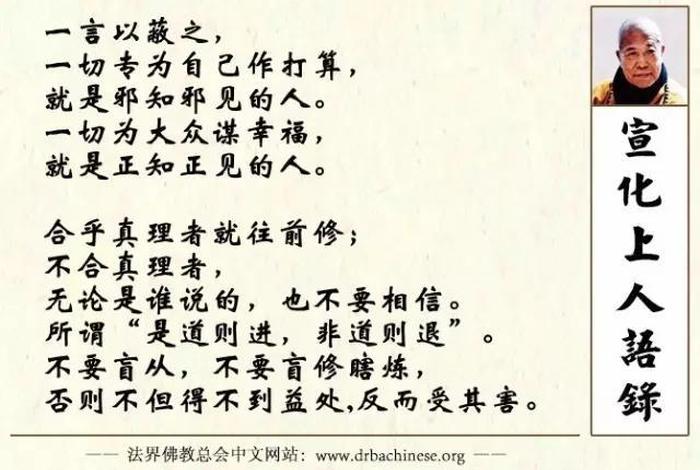 一言以蔽之，
一切专为自己作打算，
就是邪知邪见的人。
一切为大众谋幸福，
就是正知正见的人。
合乎真理者就往前修；
不合真理者，
无论是谁说的，也不要相信。
所谓“是道则进，非道则退”。
不要盲从，不要盲修瞎炼，
否则不但得不到益处,反而受其害。
宣化上人語錄
—— 法界佛教总会中文网站：www.drbachinese.org ——